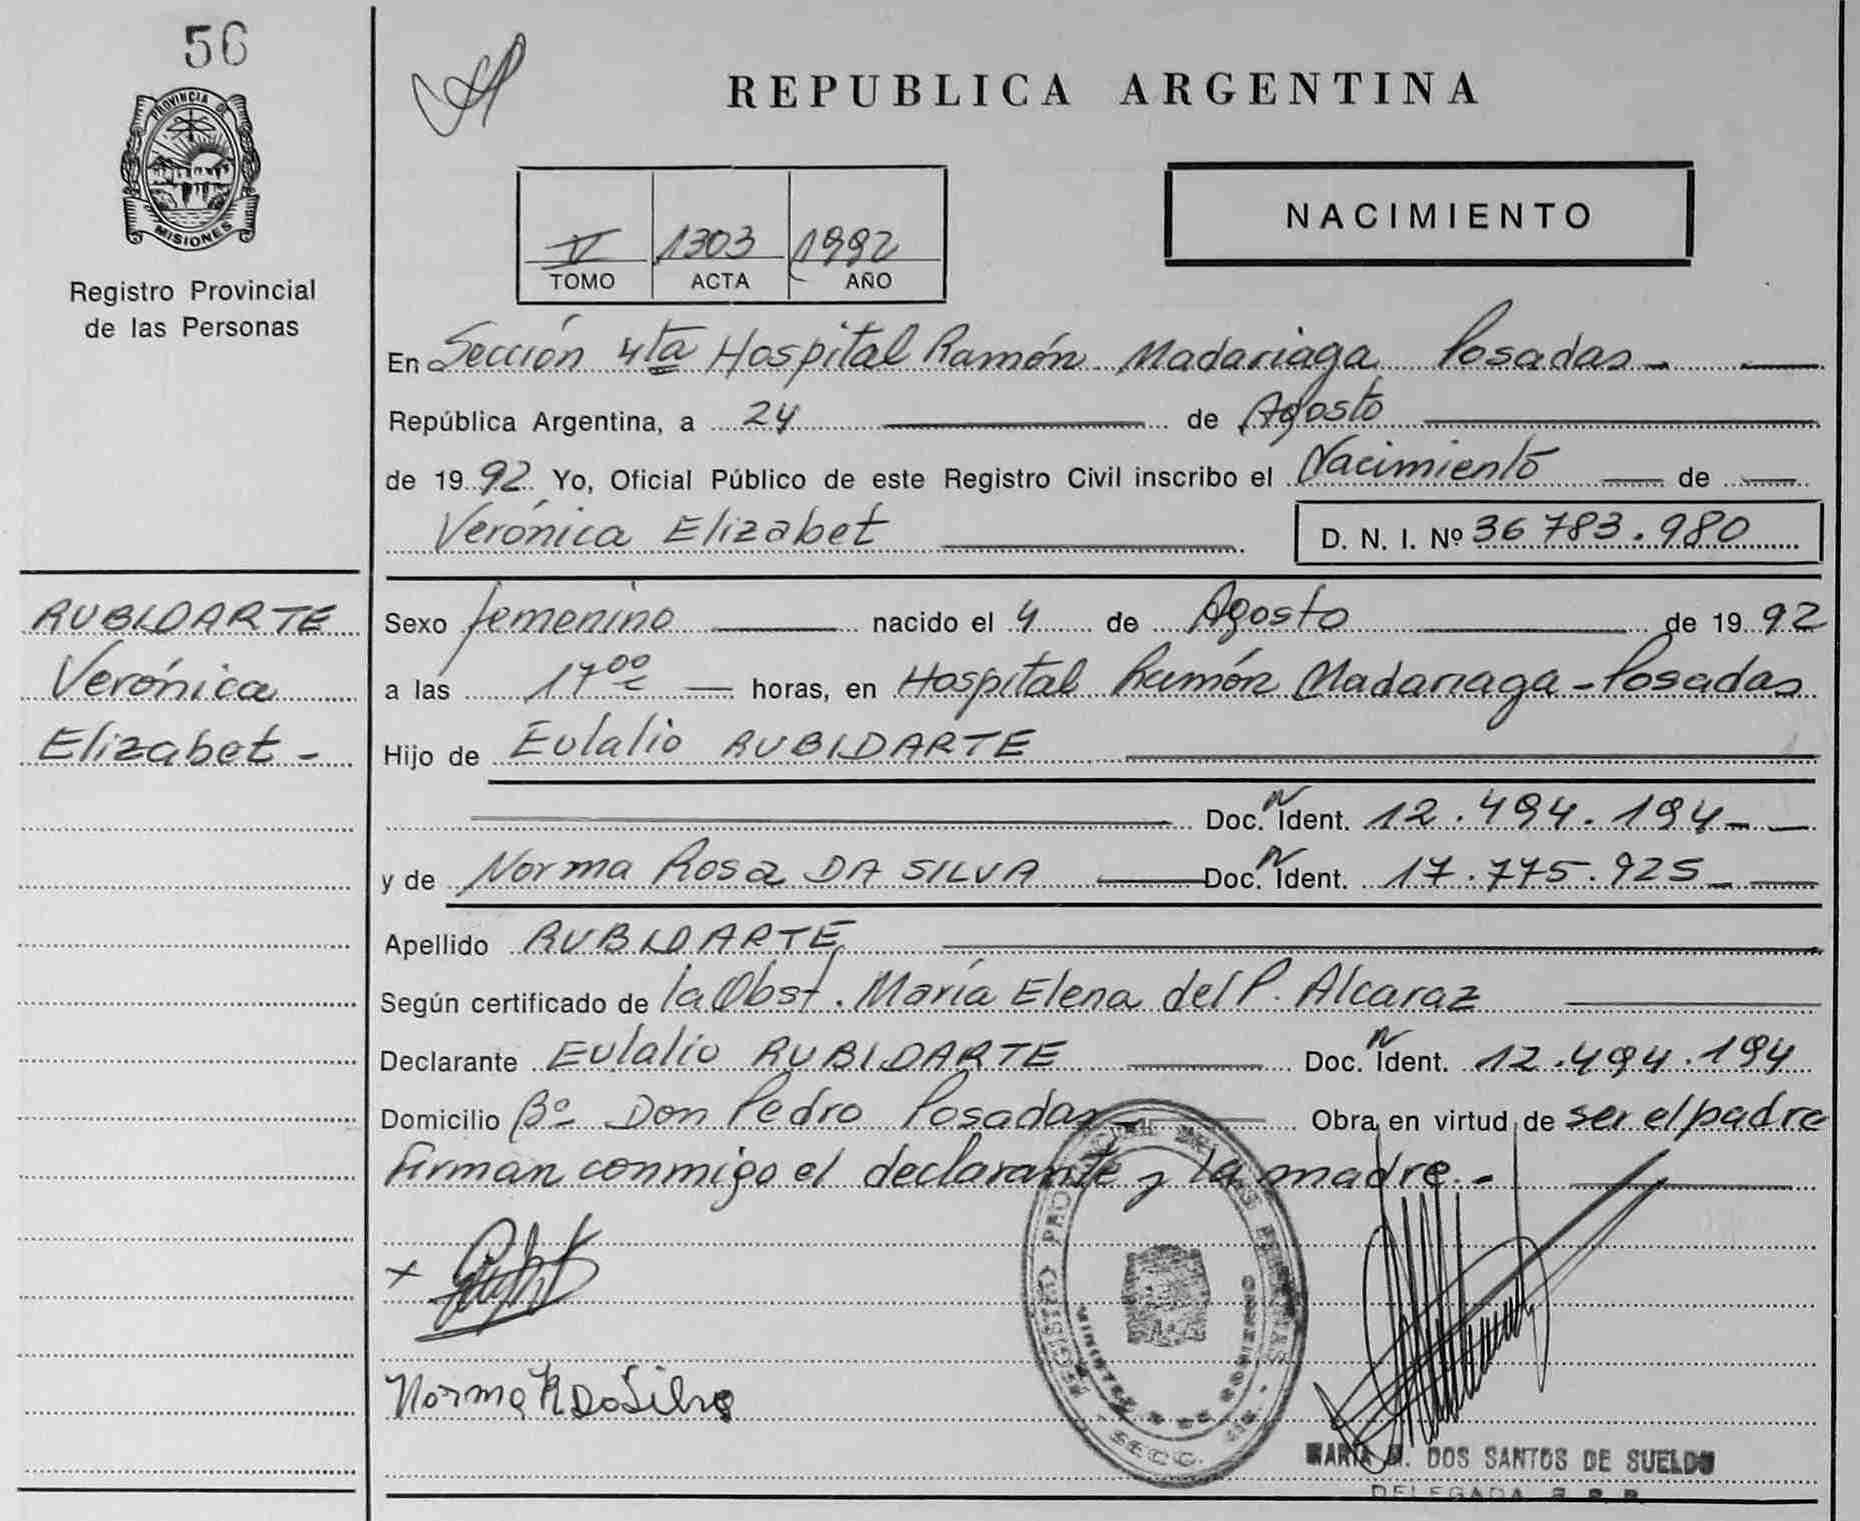 56
PROVINCIA DE
MISIONES
Registro Provincial
de las Personas
REPUBLICA ARGENTINA
V 1303 1992
TOMO ACTA AÑO
NACIMIENTO
En Sección 4ta Hospital Ramón Madariaga Posadas
República Argentina, a 24 de Agosto
de 1992 Yo, Oficial Público de este Registro Civil inscribo el Nacimiento de
Verónica Elizabet D. N. I. Nº 36 783.980
RUBIDARTE
Verónica
Elizabet -
Sexo femenino nacido el 4 de Agosto de 1992
a las 17 00 horas, en Hospital Ramón Madariaga - Posadas
Hijo de Eulalio RUBIDARTE
Doc. N Ident. 12.494.194
y de Norma Rosa DA SILVA Doc. N Ident. 17.775.925
Apellido RUBIDARTE
Según certificado de la Obst. María Elena del P. Alcaraz
Declarante Eulalio RUBIDARTE Doc. N Ident. 12.494.194
Domicilio Bº Don Pedro Posadas Obra en virtud de ser el padre
firman conmigo el declarante y la madre.-
REGISTRO PROVINCIAL DE LAS PERSONAS
MINISTERIO DE GOBIERNO
SECC.
Norma R Da Silva
MARIA DOS SANTOS DE SUELDO
DELEGADA R. P. P.